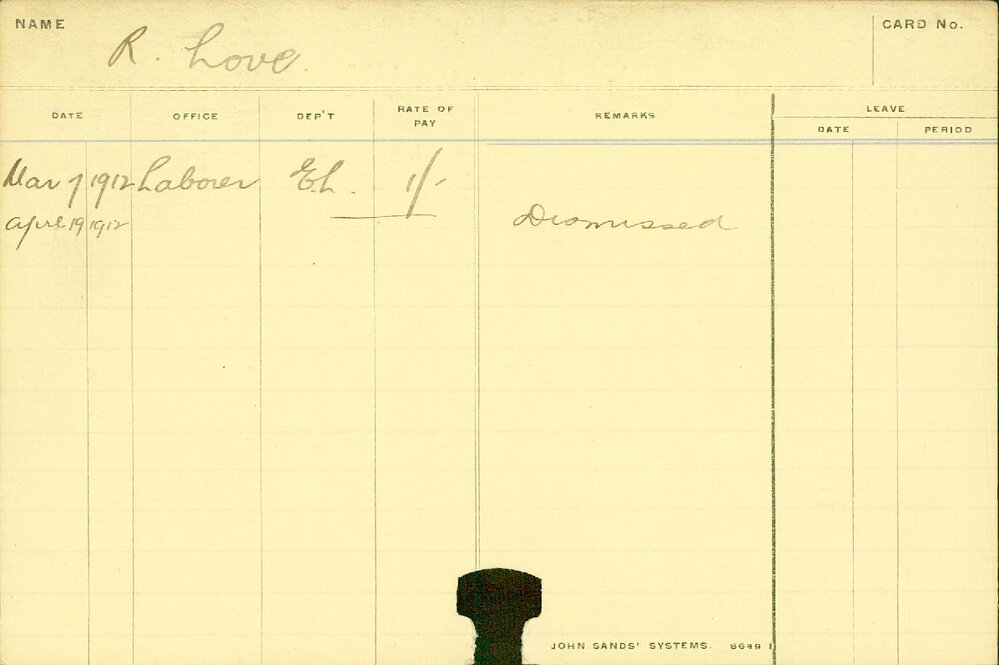 NAME R. Love CARD No.
DATE OFFICE DEP'T RATE OF PAY REMARKS LEAVE
DATE PERIOD
Mar 7 1912 Laborer E.L. 1/-
April 19 1912 Dismissed
JOHN SANDS' SYSTEMS.